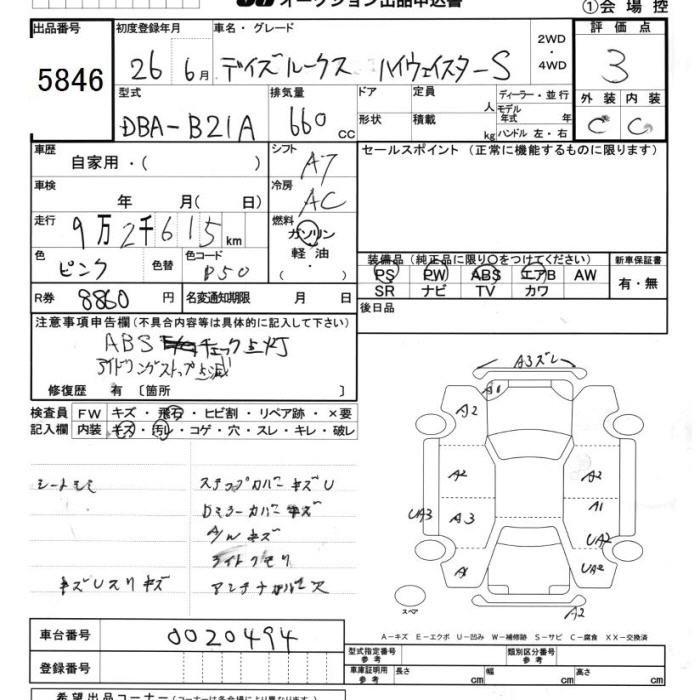 オークション出品申込書
①会場控
出品番号 初度登録年月 車名・グレード 評価点
5846 26 6月 デイズルークス ハイウェイスターS 2WD・4WD 3
型式 排気量 ドア 定員 人 ディーラー・並行 外装 内装
DBA-B21A 660 CC 形状 積載 kg モデル年式 年 ハンドル 左・右 C C
車歴 自家用・( ) シフト AT セールスポイント（正常に機能するものに限ります）
車検 年 月( 日) 冷房 AC
走行 9万2千615 km 燃料 ガソリン
軽油
・
( )
色 ピンク 色替 色コード
装備品（純正品に限り○をつけてください） 新車保証書
PS PW ABS エアB AW 有・無
SR ナビ TV カワ
R券 8860円 名変通知期限 月 日
後日品
注意事項申告欄(不具合内容等は具体的に記入して下さい)
ABS チェック点灯
アイドリングストップ点滅
修復歴 有 〔箇所 〕
検査員 FW キズ・飛石・ヒビ割・リペア跡・×要
記入欄 内装 キズ・汚れ・コゲ・穴・スレ・キレ・破レ
シートシミ ステップカバーキズU
ドミラーカバーキズ
A/Wキズ
ライトクモリ
キズUスリキズ
A3ズレ
A1
A2
A2 A2
A3 A1
UA3 UA2
UA2
A2
スペア
A-キズ E-エクボ U-凹み W-補修跡 S-サビ C-腐食 XX-交換済
車台番号 0020494
登録番号
型式指定番号 参考 類別区分番号 参考
車庫証明用 参考 長さ cm 幅 cm 高さ cm
希望出品コーナー(コーナーは各会場により異なります)